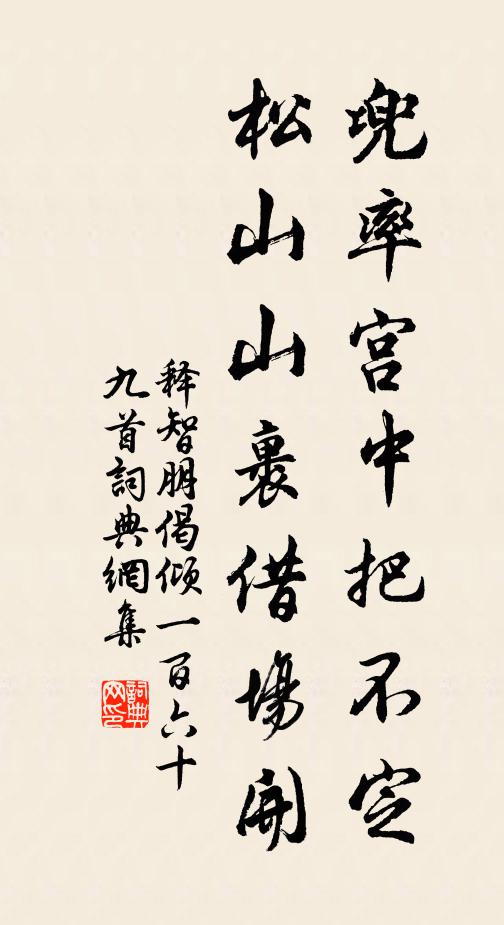 兜率宫中把不定
松山山裹借場開
释智朋偈倾一百六十
九首詞典網集
詞典网印